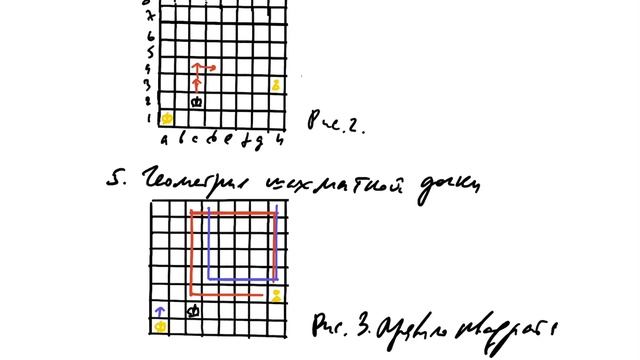 8
7
6
5
4
3
2
1
a b c d e f g h
Рис. 2.
5. Геометрия шахматной доски
Рис. 3. Правило квадрата